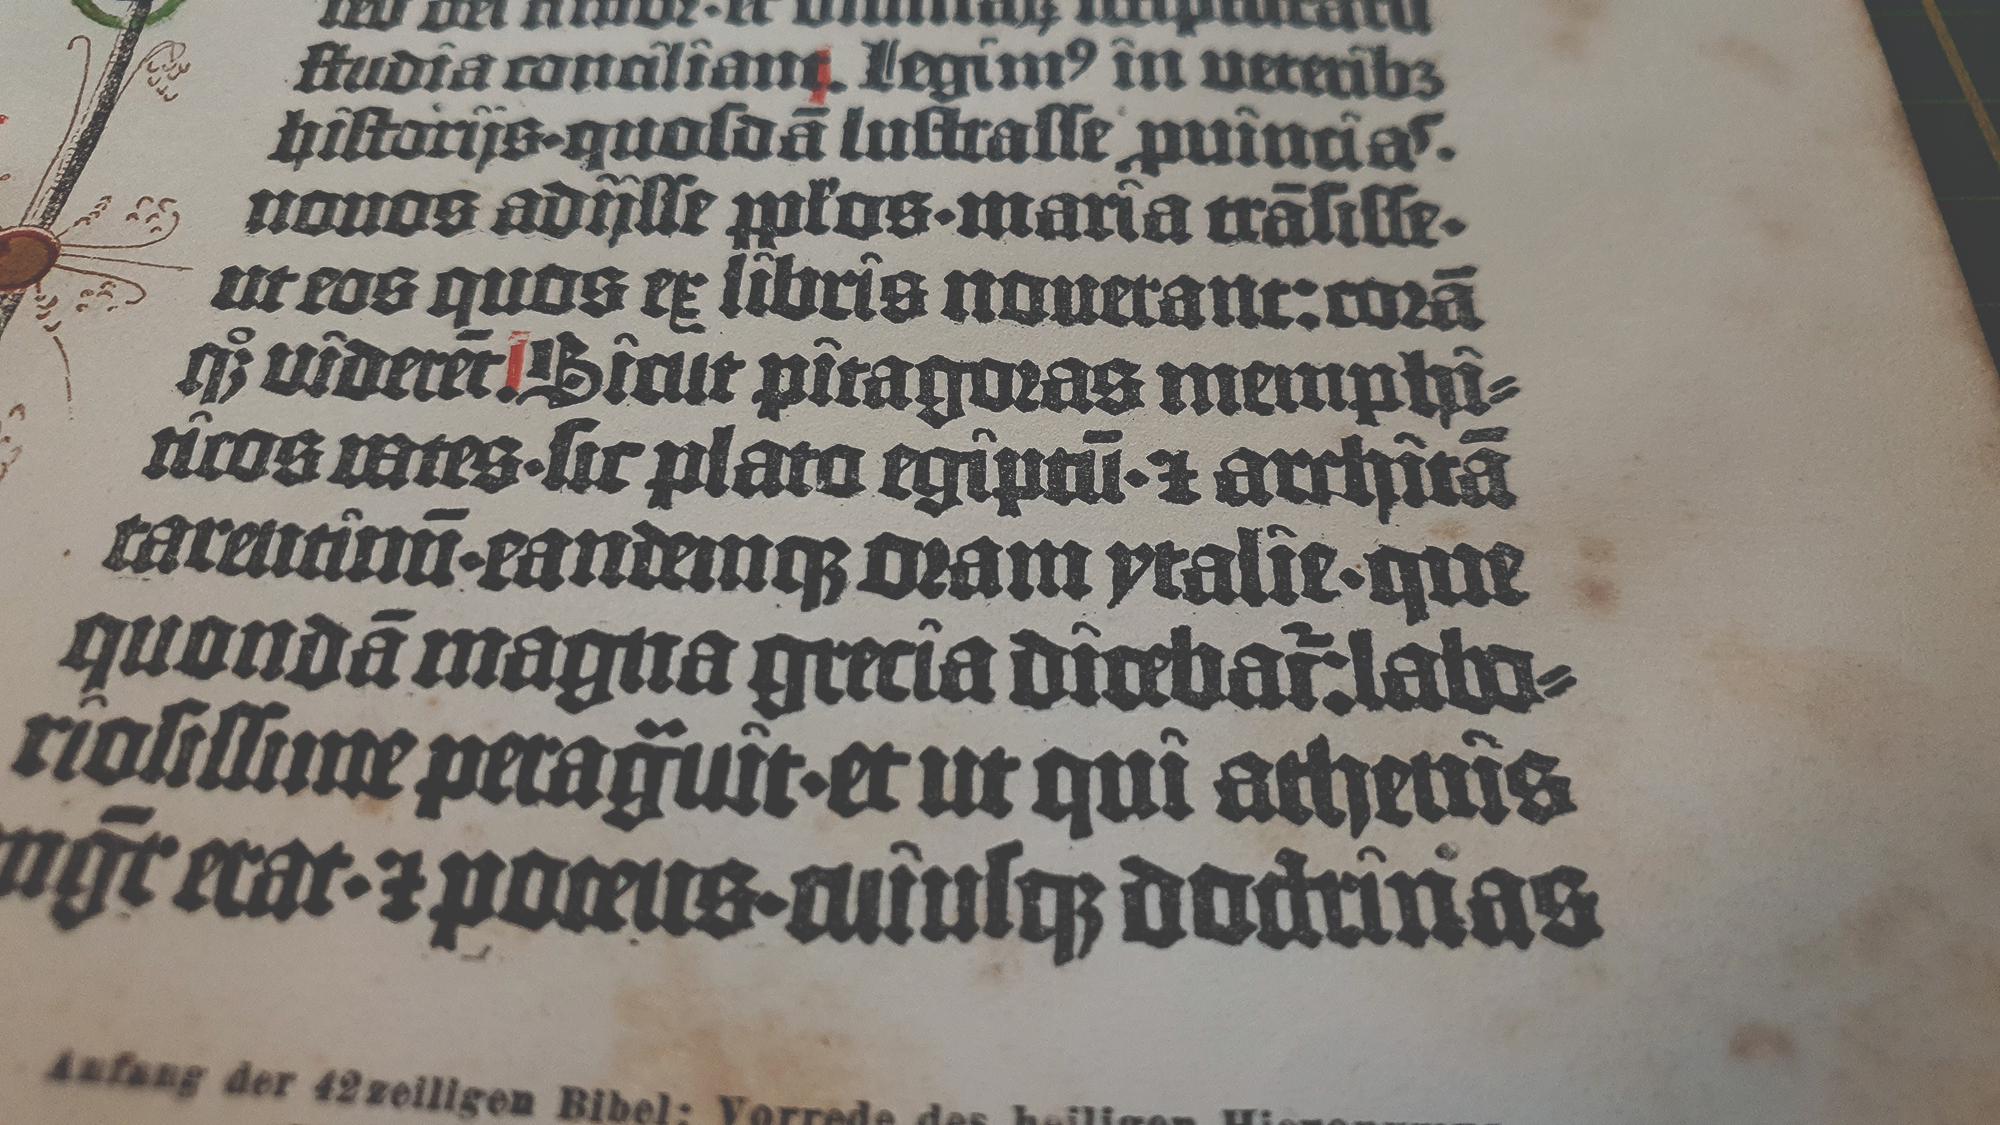 sed dei timor·et diuinaꝝ scripturarū
studia conciliant. Legimꝰ in veteribꝫ
historijs·quosdā lustrasse ꝓuincias·
nouos adijsse pp̄los·maria trāsisse·
ut eos quos ex libris nouerant: corā
qꝫ viderēt. Sicut pitagoras memphi⸗
ticos vates·sic plato egiptū·⁊ architā
tarentinū·eandemqꝫ oram ytalie·que
quondā magna grecia dicebat̄. labo⸗
riosissime peragᷓuit·et ut qui athenis
mgr̄ erat·⁊ potens·cuiusqꝫ doctrinas
Anfang der 42zeiligen Bibel: Vorrede des heiligen Hieronymus